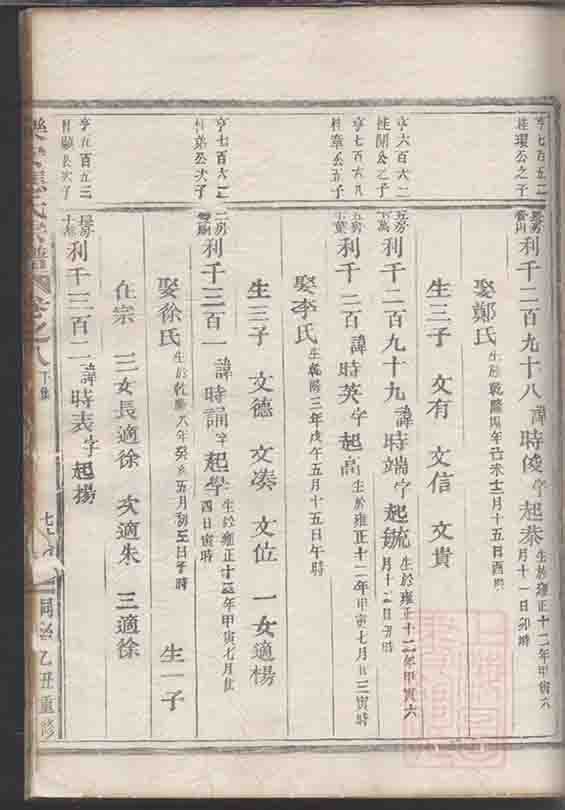 亨七百五二
桂環公之子
長房
利千二百九十八 諱時俊字起恭 生於雍正十二年甲寅六月十一日卯時
娶鄭氏 生於乾隆四年己未十二月十五日酉時
生三子 文有 文信 文貴
亨六百六二
桂開公之子
長房
利千二百九十九 諱時端字起 生於雍正十二年甲寅六月十二日丑時
亨七百六九
桂章公五子
利千二百 諱時英字起高 生於雍正十二年甲寅七月廿三寅時
娶李氏 生乾隆三年戊午五月十五日午時
生三子 文德 文湊 文位 一女適楊
亨七百六二
桂弟公次子
二房
利千三百一 諱時誦字起學 生於雍正十二年甲寅七月廿四日寅時
娶徐氏 生於乾隆八年癸亥五月初五日子時 生一子
在宗 三女長適徐 次適朱 三適徐
亨五百五三
桂顯長次子
長房
利千三百二 諱時表字起揚
氏宗譜 卷之八 下集
同治乙丑重修